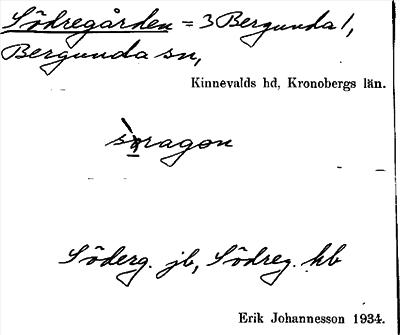 Södregården = 3 Bergunda 1,
Bergunda sn,
Kinnevalds hd, Kronobergs län.
Söderg. jb, Södreg. hb
Erik Johannesson 1934.